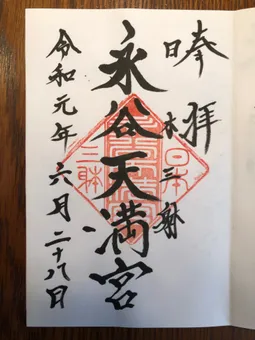 奉拝
日本三躰
永谷天満宮
令和元年六月二十八日
日本
三躰